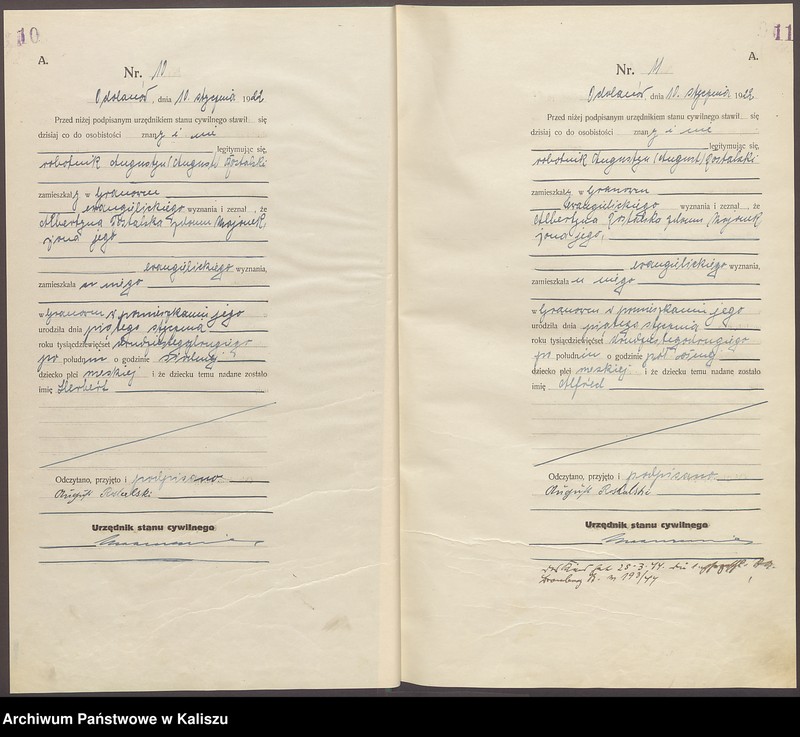 10
A.
Nr. 10
Odolanów, dnia 10 stycznia 1922
Przed niżej podpisanym urzędnikiem stanu cywilnego stawił się
dzisiaj co do osobistości znany i nie
legitymując się,
robotnik Augustyn (August) Rostalski
zamieszkały w Granowcu
ewangielickiego wyznania i zeznał, że
Albertyna Rostalska z domu
żona jego
ewangielickiego wyznania,
zamieszkała u niego
w Granowcu w pomieszkaniu jego
urodziła dnia piątego stycznia
roku tysiącdziewięćset dwudziestegodrugiego
po południu o godzinie
dziecko płci męskiej i że dziecku temu nadane zostało
imię Herbert
Odczytano, przyjęto i podpisano
August Rostalski
Urzędnik stanu cywilnego
11
A.
Nr. 11
Odolanów, dnia 10. stycznia 1922
Przed niżej podpisanym urzędnikiem stanu cywilnego stawił się
dzisiaj co do osobistości znany i nie
legitymując się,
robotnik Augustyn (August) Rostalski
zamieszkały w Granowcu
ewangielickiego wyznania i zeznał, że
Albertyna Rostalska z domu
żona jego,
ewangielickiego wyznania,
zamieszkała u niego
w Granowcu w pomieszkaniu jego
urodziła dnia piątego stycznia
roku tysiącdziewięćset dwudziestegodrugiego
po południu o godzinie pół ósmej
dziecko płci męskiej i że dziecku temu nadane zostało
imię Alfred
Odczytano, przyjęto i podpisano
August Rostalski
Urzędnik stanu cywilnego
25.3.44.
193/44
Archiwum Państwowe w Kaliszu